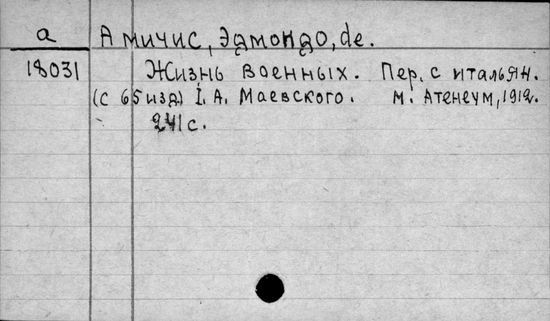 а Амичис, Эдмондо, de.
18031 Жизнь военных. Пер. с итальян.
(с 65 изд) І. А. Маевского. М. Атенеум, 1912.
241 с.